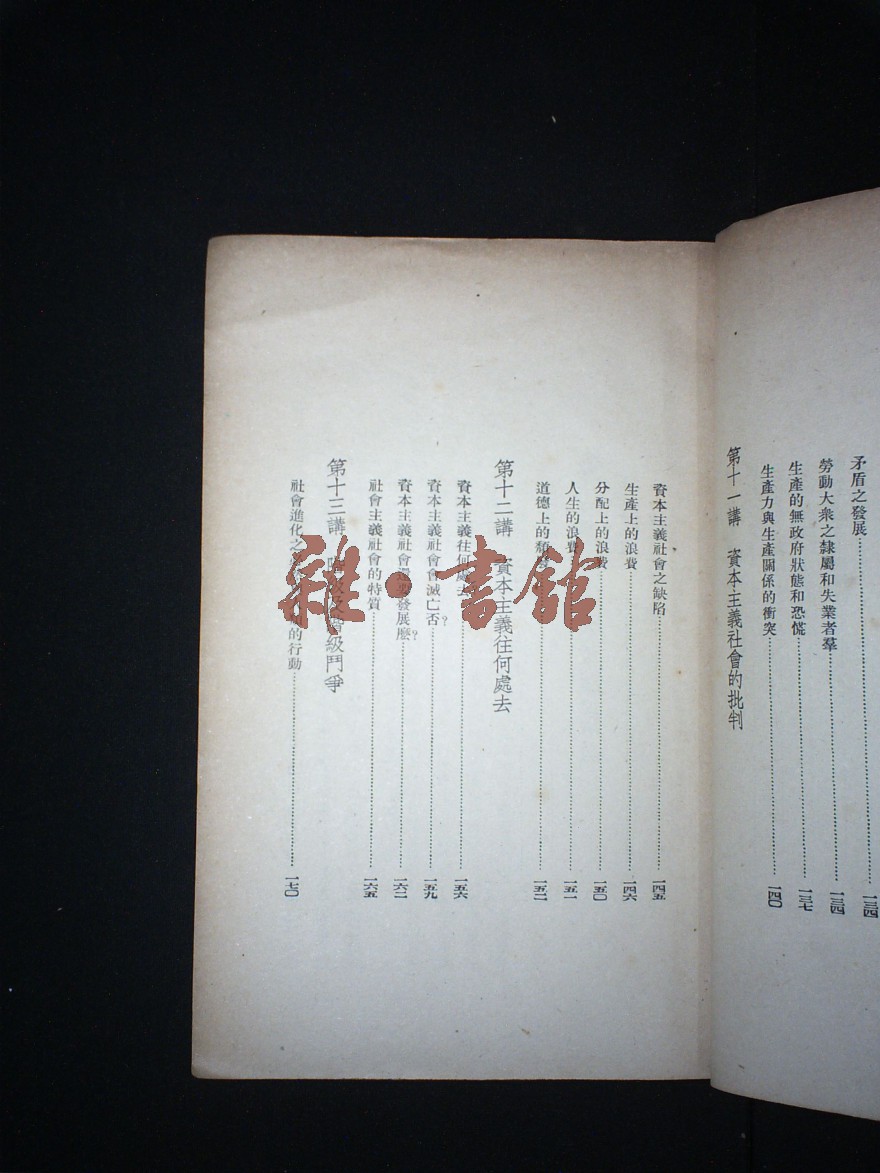 矛盾之發展 一三四
勞動大衆之隸屬和失業者羣 一三四
生產的無政府狀態和恐慌 一三七
生產力與生產關係的衝突 一四〇
第十一講 資本主義社會的批判
資本主義社會之缺陷 一四五
生產上的浪費 一四六
分配上的浪費 一五〇
人生的浪費 一五一
道德上的 一五二
第十二講 資本主義往何處去
資本主義往何處去 一五六
資本主義社會會滅亡否? 一五九
資本主義社會還要發展麽? 一六二
社會主義社會的特質 一六五
第十三講 階級及階級鬥爭
社會進化之 的行動 一七〇
雜·書館